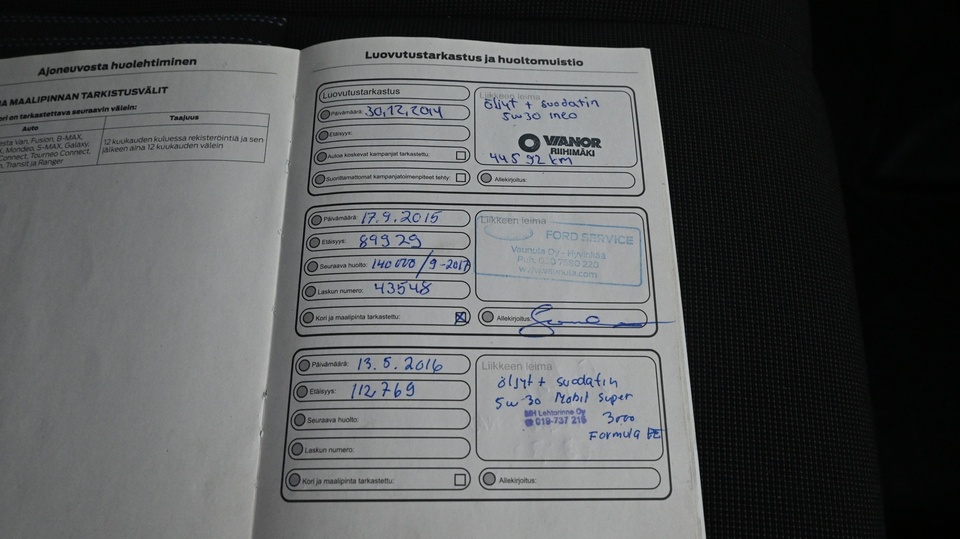 Ajoneuvosta huolehtiminen
A MAALIPINNAN TARKISTUSVÄLIT
ori on tarkastettava seuraavin välein:
Auto
Taajuus
esta Van, Fusion, B-MAX,
, Mondeo, S-MAX, Galaxy,
Connect, Tourneo Connect,
, Transit ja Ranger
12 kuukauden kuluessa rekisteröintiä ja sen
jälkeen aina 12 kuukauden välein
Luovutustarkastus ja huoltomuistio
Luovutustarkastus
Päivämäärä: 30.12.2014
Etäisyys:
Autoa koskevat kampanjat tarkastettu:
Suorittamattomat kampanjatoimenpiteet tehty:
Liikkeen leima
öljyt + suodatin
5w30 ineo
VIANOR
RIIHIMÄKI
44592 km
Allekirjoitus:
Päivämäärä: 17.9.2015
Etäisyys: 89929
Seuraava huolto: 140 000 / 9-2017
Laskun numero: 43548
Kori ja maalipinta tarkastettu:
Liikkeen leima
FORD SERVICE
Vaunula Oy, Hyvinkää
Allekirjoitus:
Päivämäärä: 13.5.2016
Etäisyys: 112,769
Seuraava huolto:
Laskun numero:
Kori ja maalipinta tarkastettu:
Liikkeen leima
öljyt + suodatin
5w-30 Mobil super
3000
Formula FE
MH Lehtorinne Oy
019-737 215
Allekirjoitus: